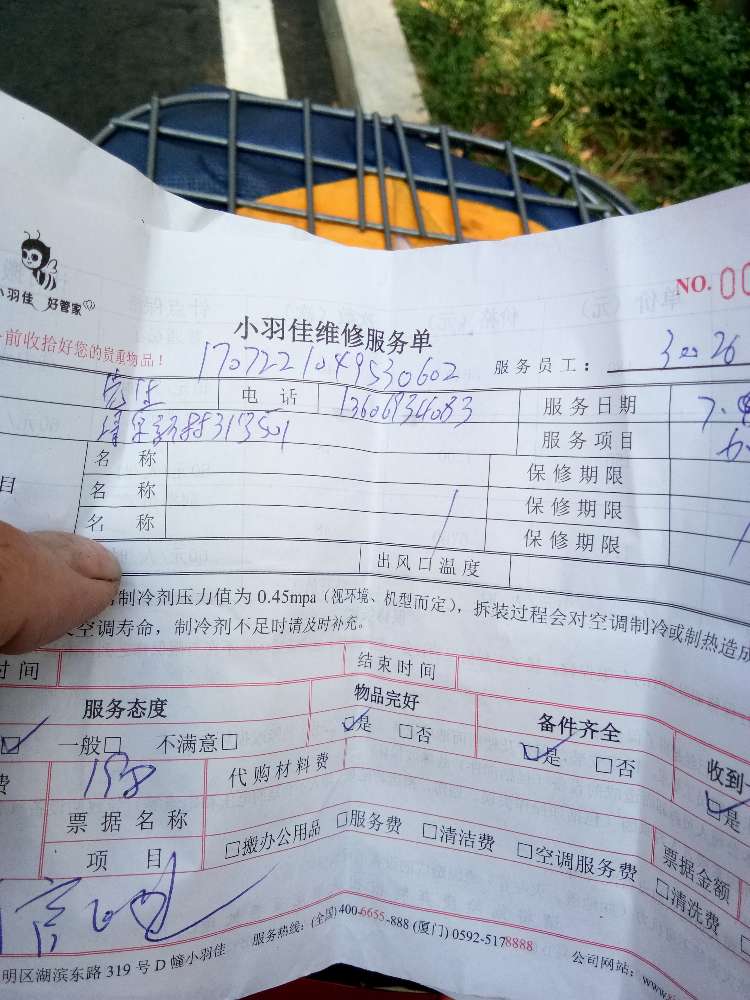 NO. 00
小羽佳 好管家
小羽佳维修服务单
前收拾好您的贵重物品！
1707221049530602
服务员工： 30026
电 话 13606934083 服务日期 7.
服务项目
目 名 称 保修期限
名 称 保修期限
名 称 保修期限
出风口温度
制冷剂压力值为 0.45mpa（视环境、机型而定），拆装过程会对空调制冷或制热造成
空调寿命，制冷剂不足时请及时补充。
时间 结束时间
服务态度 物品完好 备件齐全 收到
一般□ 不满意□ □是 □否 □是 □否 □是
费 198 代购材料费
票据名称 □搬办公用品 □服务费 □清洁费 □空调服务费 票据金额
项 目 □清洗费
服务热线：(全国) 400-6655-888 (厦门) 0592-5178888
明区湖滨东路 319 号 D 幢小羽佳 公司网站：www.